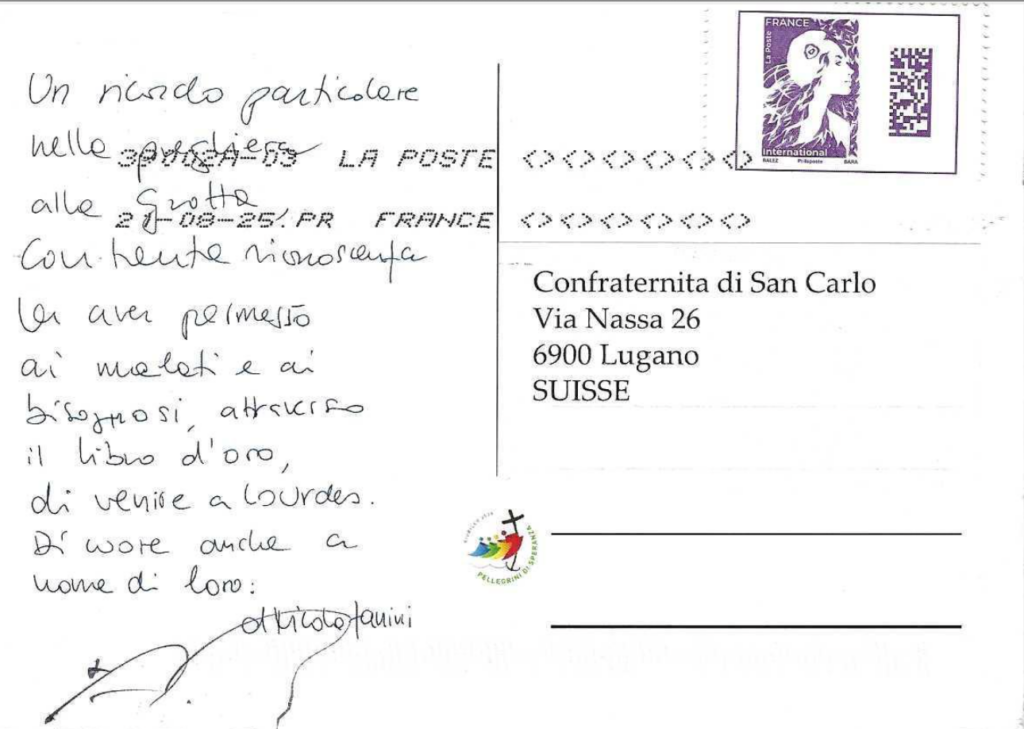 Un ricordo particolare
nella preghiera
alla Grotta
Con tanta riconoscenza
per aver permesso
ai malati e ai
bisognosi, attraverso
il libro d'oro,
di venire a Lourdes.
Di cuore anche a
nome di loro:
LA POSTE
21-08-25 PR FRANCE
FRANCE
La Poste
International
Philaposte
Confraternita di San Carlo
Via Nassa 26
6900 Lugano
SUISSE
PELLEGRINI DI SPERANZA